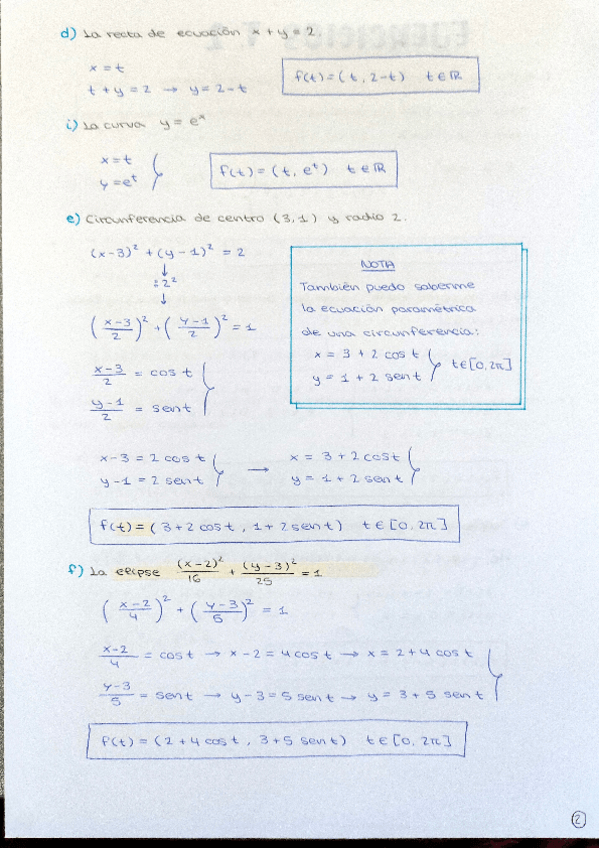 d) La recta de ecuación x + y = 2.
x = t
t + y = 2 → y = 2 - t
f(t) = (t, 2-t) t ∈ ℝ
i) La curva y = eˣ
x = t
y = eᵗ
f(t) = (t, eᵗ) t ∈ ℝ
e) Circunferencia de centro (3,1) y radio 2.
(x-3)² + (y-1)² = 2
↓
: 2²
↓
(x-3/2)² + (y-1/2)² = 1
x-3/2 = cos t
y-1/2 = sen t
NOTA
También puedo saberme
la ecuación paramétrica
de una circunferencia:
x = 3 + 2 cos t
y = 1 + 2 sen t
t ∈ [0, 2π]
x-3 = 2 cos t → x = 3 + 2 cos t
y-1 = 2 sen t y = 1 + 2 sen t
f(t) = (3 + 2 cos t, 1 + 2 sen t) t ∈ [0, 2π]
f) La elipse (x-2)²/16 + (y-3)²/25 = 1
(x-2/4)² + (y-3/5)² = 1
x-2/4 = cos t → x-2 = 4 cos t → x = 2 + 4 cos t
y-3/5 = sen t → y-3 = 5 sen t → y = 3 + 5 sen t
f(t) = (2 + 4 cos t, 3 + 5 sen t) t ∈ [0, 2π]
2